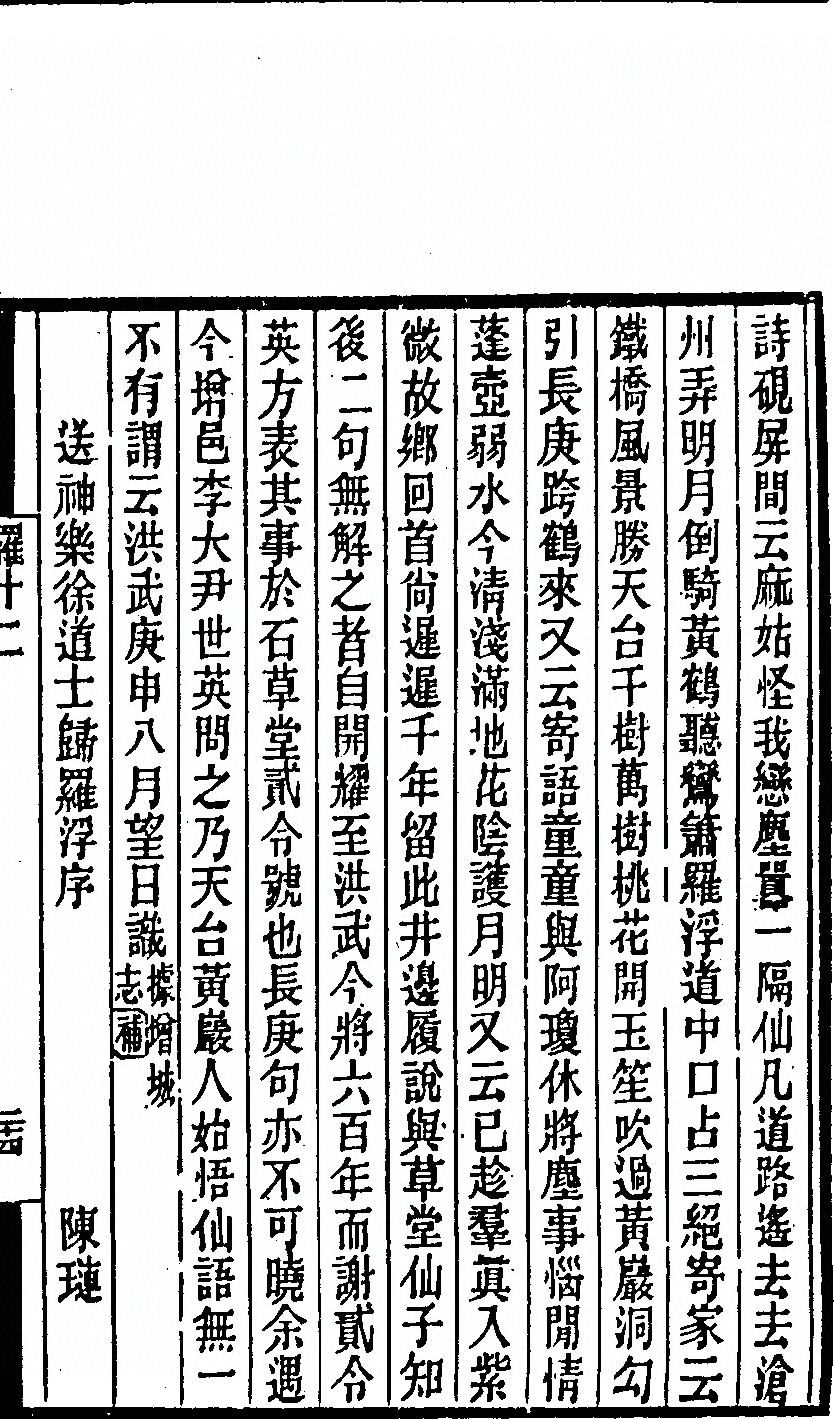 詩硯屏間云麻姑怪我戀塵囂一隔仙凡道路遙去去滄
州弄明月倒騎黃鶴聽鸞簫羅浮道中口占三絕寄家云
鐵橋風景勝天台千樹萬樹桃花開玉笙吹過黃巖洞勾
引長庚跨鶴來又云寄語童童與阿瓊休將塵事惱閒情
蓬壺弱水今清淺滿地花陰護月明又云已趁羣眞入紫
微故鄉回首尙遲遲千年留此井邊履說與草堂仙子知
後二句無解之者自開耀至洪武今將六百年而謝貳令
英方表其事於石草堂貳令號也長庚句亦不可曉余遇
今增邑李大尹世英問之乃天台黃巖人始悟仙語無一
不有謂云洪武庚申八月望日識據增城志補
送神樂徐道士歸羅浮序 陳璉
羅十二 二十四